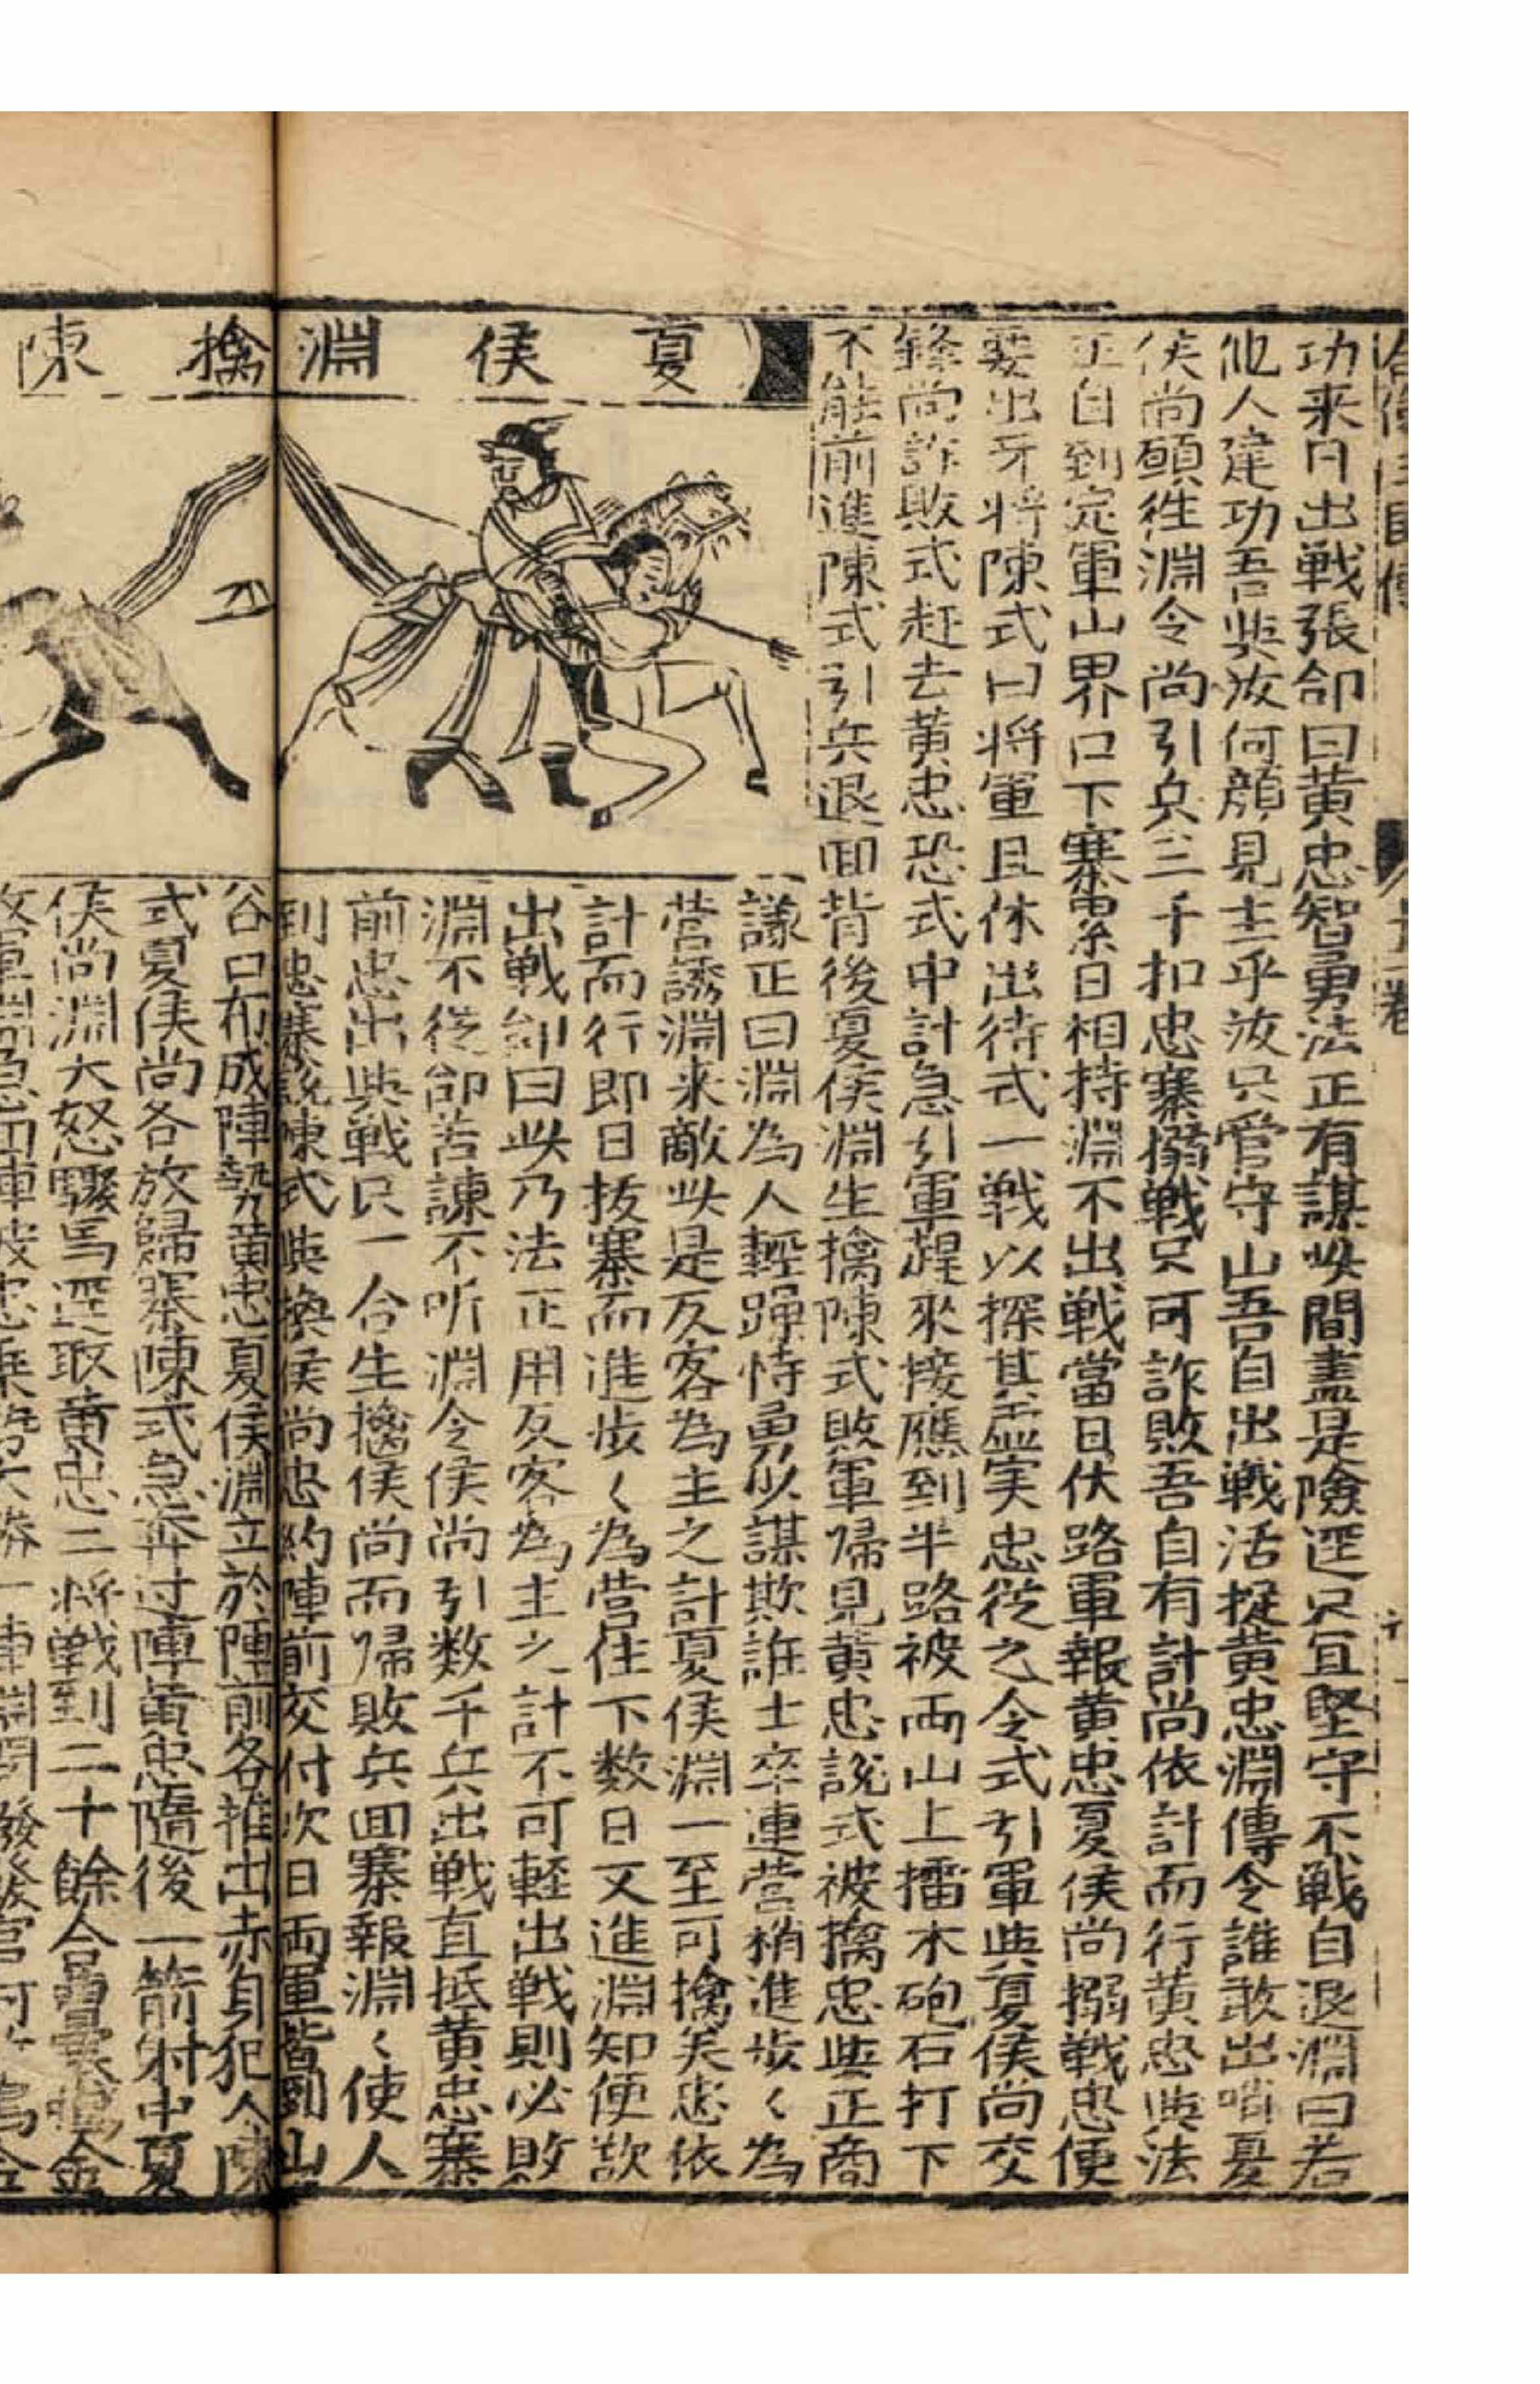 功来日出戦張郃曰黄忠智勇法正有謀此間盡是險逕只宜堅守不戦自退淵曰若
他人建功吾與汝何顔見主乎汝只管守山吾自出戦活捉黄忠淵傳令誰敢出哨夏
侯尚願徃淵令尚引兵三千扣忠寨搦戦只可詐敗吾自有計尚依計而行黄忠與法
正自到定軍山界口下寨累日相持淵不出戦當日伏路軍報黄忠夏侯尚搦戦忠便
要出牙將陳式曰將軍且休出待式一戦以探其虚実忠從之令式引軍與夏侯尚交
鋒尚詐敗式赶去黄忠恐式中計急引軍趕來接應到半路被両山上擂木砲石打下
不能前進陳式引兵退回背後夏侯淵生擒陳式敗軍帰見黄忠説式被擒忠與正商
夏侯淵擒陳
議正曰淵為人輕躁恃勇少謀欺誑士卒連營稍進步〻為
营誘淵来敵此是反客為主之計夏侯淵一至可擒矣忠依
計而行即日拔寨而進步〻為营住下数日又進淵知便欲
出戦郃曰此乃法正用反客為主之計不可軽出戦則必敗
淵不從郃苦諫不听淵令侯尚引数千兵出戦直抵黄忠寨
前忠出與戦只一合生擒侯尚而帰敗兵回寨報淵〻使人
到忠寨說陳式與換侯尚忠約陣前交付次日両軍皆到山
谷口布成陣勢黄忠夏侯淵立於陣前各推出赤身犯人陳
式夏侯尚各放歸寨陳式急奔过陣黄忠隨後一箭射中夏
侯尚淵大怒驟馬逕取黄忠二將戦到二十餘合曹寨鳴金